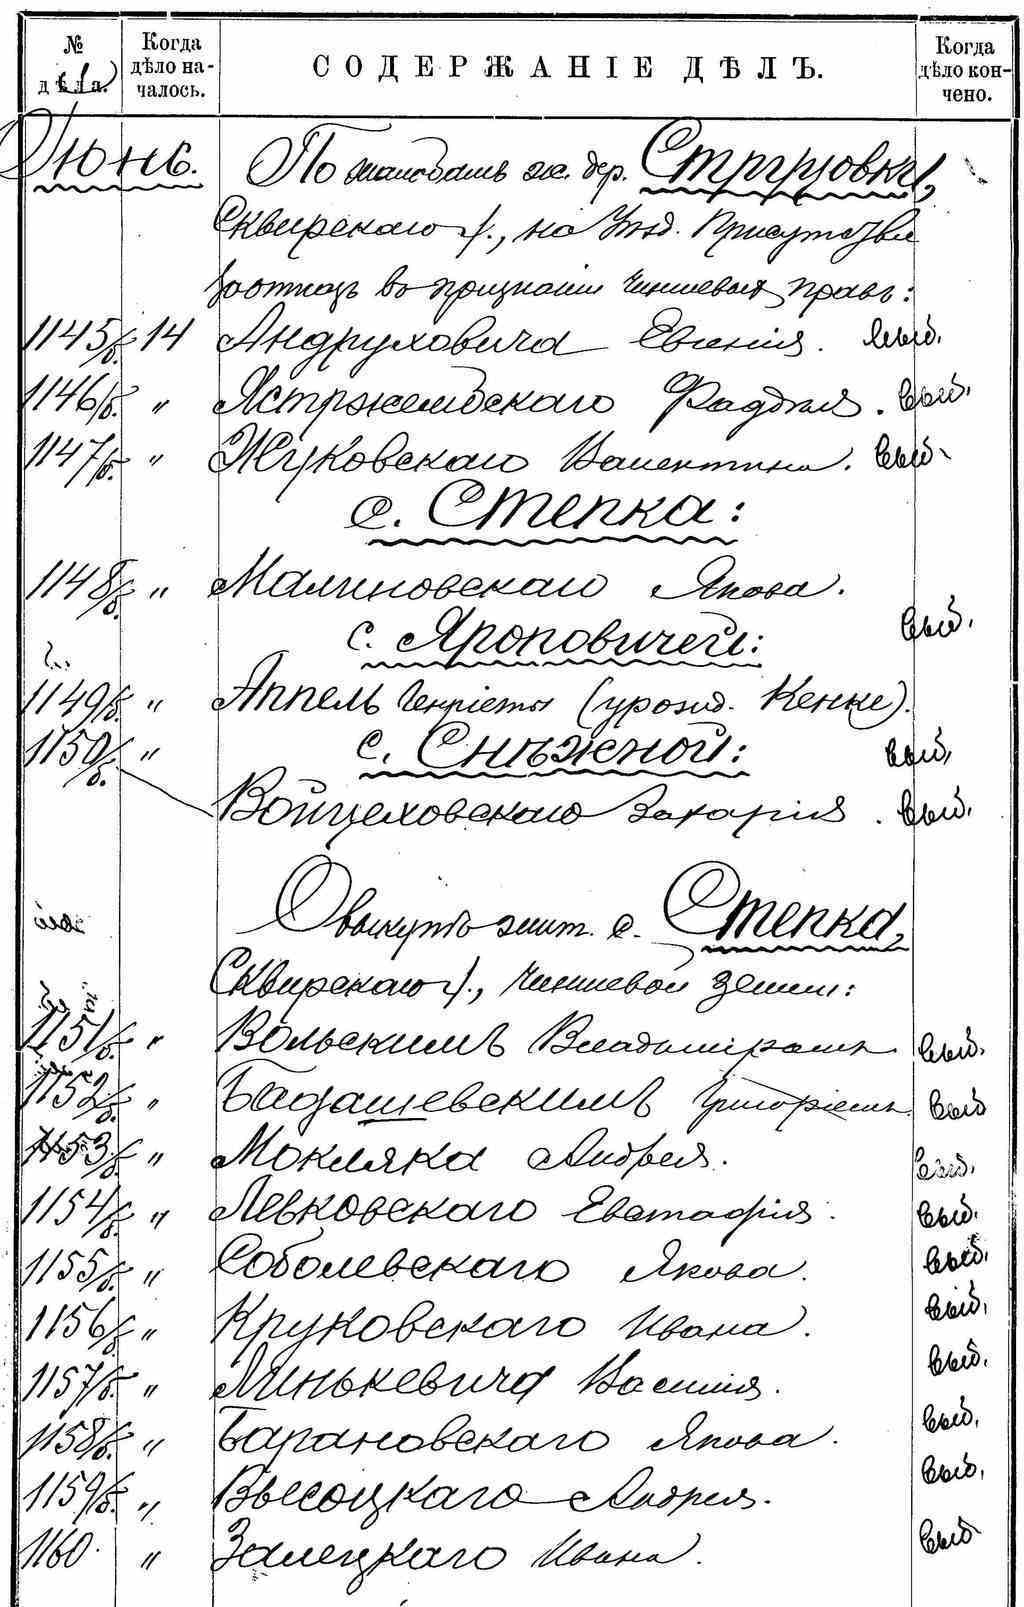 № дѣла.
Когда дѣло началось.
СОДЕРЖАНІЕ ДѢЛЪ.
Когда дѣло кончено.
Іюнь.
По жалобамъ жит. дер. Стругцовки,
Сквирскаго у., на Уѣзд. Присутствіе
въ признаніи чиншевыхъ правъ:
1145/б. 14 Андруховича Евгенія. выб.
1146/б. " Ястржембскаго Фаддѣя. выб.
1147/б. " Жуковскаго Валентина. выб.
с. Степка:
1148/б. " Малиновскаго Якова.
с. Яроповичей: выб.
1149/б. " Аппель Генріеты (урожд. Кенке).
1150/б. " с. Снѣжной: выб.
Войцеховскаго Захарія. выб.
О выкупѣ жит. с. Степка,
Сквирскаго у., чиншевой земли:
1151/б. " Вольскимъ Владиміромъ выб.
1152/б. " Бадашевскимъ Григоріемъ выб
1153/б. " Мокляка Андрея. выб.
1154/б. " Левковскаго Евстафія. выб.
1155/б. " Соболевскаго Якова. выб.
1156/б. " Круковскаго Ивана. выб.
1157/б. " Минькевича Василія. выб.
1158/б. " Барановскаго Якова. выб.
1159/б. " Высоцкаго Андрея. выб.
1160. " Залецкаго Ивана. выб